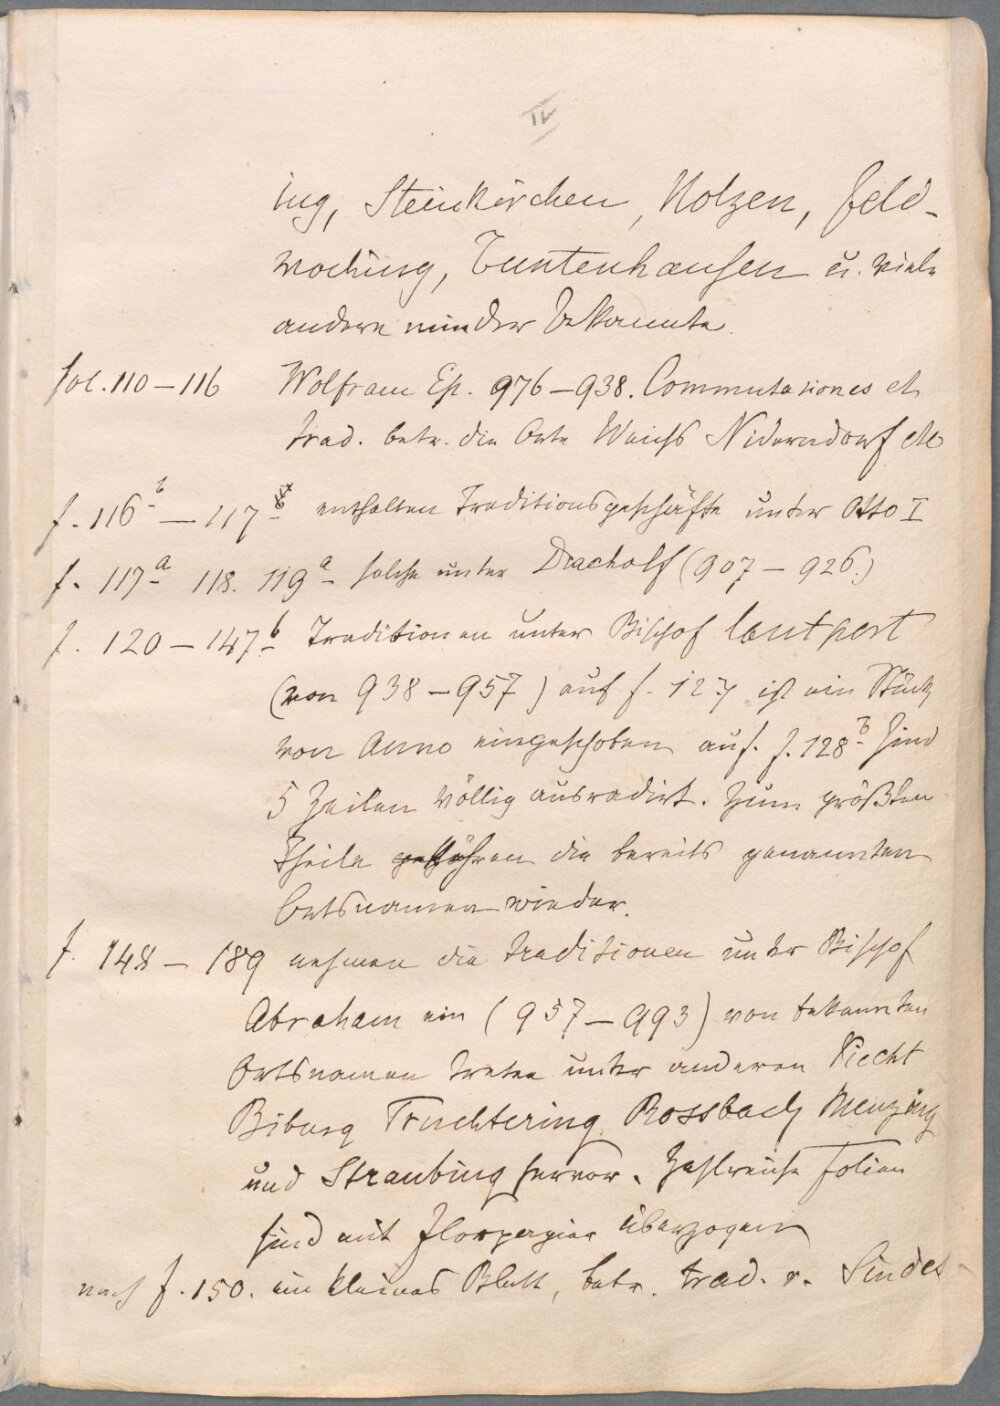 IV
ing, Steinkirchen, Holzen, Feld-
moching, Tuntenhausen u. viele
andere minder bekannte.
fol. 110 – 116 Wolfram Ep. 926 – 938. Commutationes et
trad. betr. die Orte Weichs Niderndorf etc
f. 116b – 117 enthalten Traditionsgeschäfte unter Otto I
f. 117a 118. 119a solche unter Dracholf (907 – 926.)
f. 120 – 147b Traditionen unter Bischof lantpert
(von 938 – 957) auf f. 127 ist ein Stück
von Anno eingeschoben auf. f. 128b sind
5 Zeilen völlig ausradirt. Zum größten
Theile kehren die bereits genannten
Ortsnamen wieder.
f. 148 – 189 nehmen die Traditionen unter Bischof
Abraham ein (957 – 993) von bekannten
Ortsnamen treten unter anderen Viecht
Biburg Truchtering Rossbach Menzing
und Straubing hervor. Zahlreiche Folien
sind mit Florpapier überzogen
nach f. 150. ein kleines Blatt, betr. trad. v. Sindes-